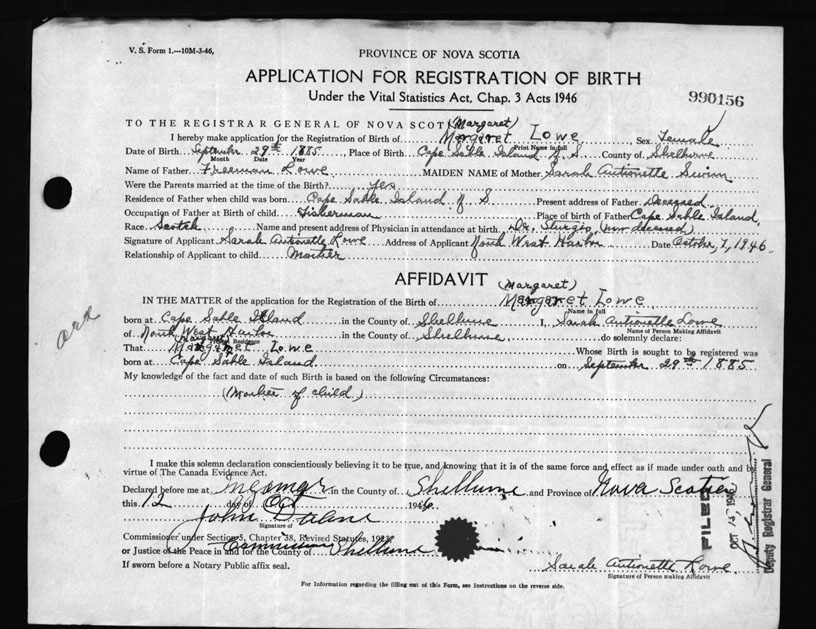 V. S. Form 1.—10M-3-46,
PROVINCE OF NOVA SCOTIA
APPLICATION FOR REGISTRATION OF BIRTH
Under the Vital Statistics Act, Chap. 3 Acts 1946
990156
TO THE REGISTRAR GENERAL OF NOVA SCOTIA
(Margaret)
I hereby make application for the Registration of Birth of Margaret Lowe Sex Female
Print Name in full
Date of Birth September 29th 1885, Place of Birth Cape Sable Island N S County of Shelburne
Month Date Year
Name of Father Freeman Lowe MAIDEN NAME of Mother Sarah Antionette Swim
Were the Parents married at the time of the Birth? yes
Residence of Father when child was born Cape Sable Island N S Present address of Father Deceased
Occupation of Father at Birth of child Fisherman Place of birth of Father Cape Sable Island,
Race Scotch Name and present address of Physician in attendance at birth, Dr. (now deceased)
Signature of Applicant Sarah Antionette Lowe Address of Applicant North West Harbor Date October, 7, 1946.
Relationship of Applicant to child Mother
AFFIDAVIT
(Margaret)
IN THE MATTER of the application for the Registration of the Birth of Margaret Lowe
Name in full
born at Cape Sable Island in the County of Shelburne I, Sarah Antionette Lowe
Name of Person Making Affidavit
of North West Harbor in the County of Shelburne do solemnly declare:
Residence
(Margaret)
That Margaret Lowe Whose Birth is sought to be registered was
born at Cape Sable Island on September 29th 1885
My knowledge of the fact and date of such Birth is based on the following Circumstances:
(Mother of child)
I make this solemn declaration conscientiously believing it to be true, and knowing that it is of the same force and effect as if made under oath and by
virtue of The Canada Evidence Act.
Declared before me at in the County of Shelburne and Province of Nova Scotia
this 12 day of Oct 1946
John
Signature of
Commissioner under Section 5, Chapter 38, Revised Statutes, 1923,
or Justice of the Peace in and for the County of Shelburne
Commissioner
If sworn before a Notary Public affix seal.
Sarah Antionette Lowe
Signature of Person making Affidavit
For Information regarding the filling out of this Form, see Instructions on the reverse side.
FILED
OCT 15 1946
Deputy Registrar General